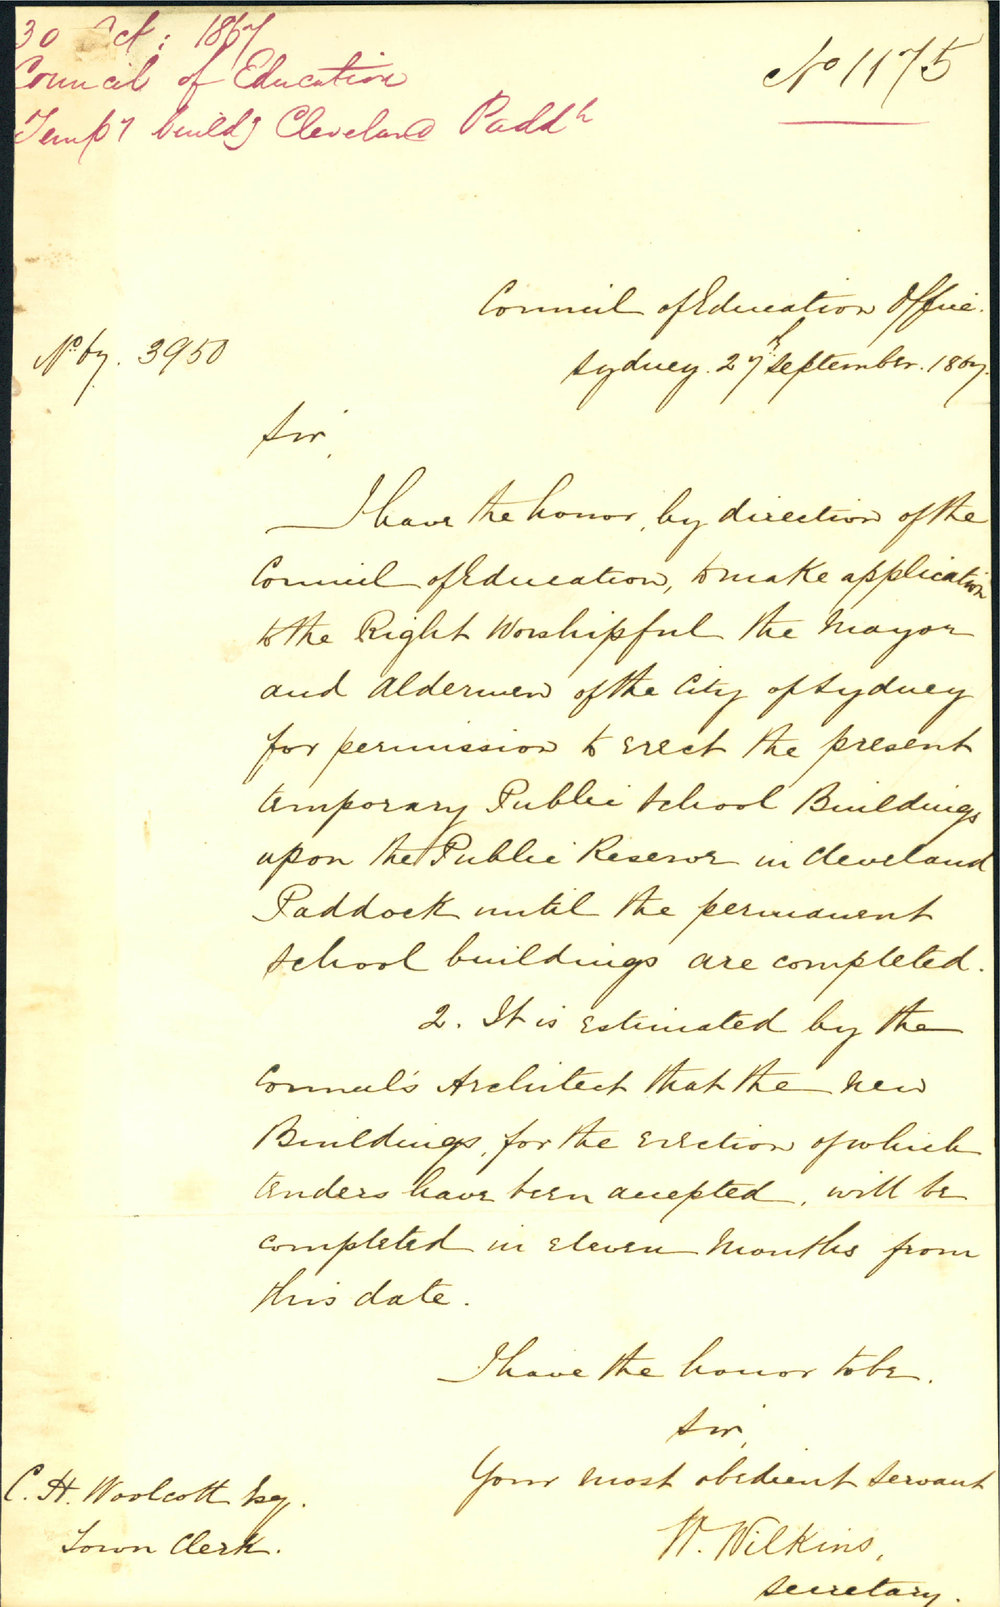 30 Oct: 1867
Council of Education
Tempy buildg Cleveland Paddk
No 1175
Council of Education Office.
No 67. 3950
Sydney. 27th September. 1867.
Sir,
I have the honor, by direction of the
Council of Education, to make application
to the Right Worshipful the Mayor
and Aldermen of the City of Sydney
for permission to erect the present
temporary Public School Buildings
upon the Public Reserve in Cleveland
Paddock until the permanent
school buildings are completed.
2. It is estimated by the
Council's Architect that the new
Buildings, for the erection of which
tenders have been accepted, will be
completed in eleven months from
this date.
I have the honor to be.
Sir,
Your most obedient servant
W. Wilkins,
Secretary.
C. H. Woolcott Esq.
Town Clerk.